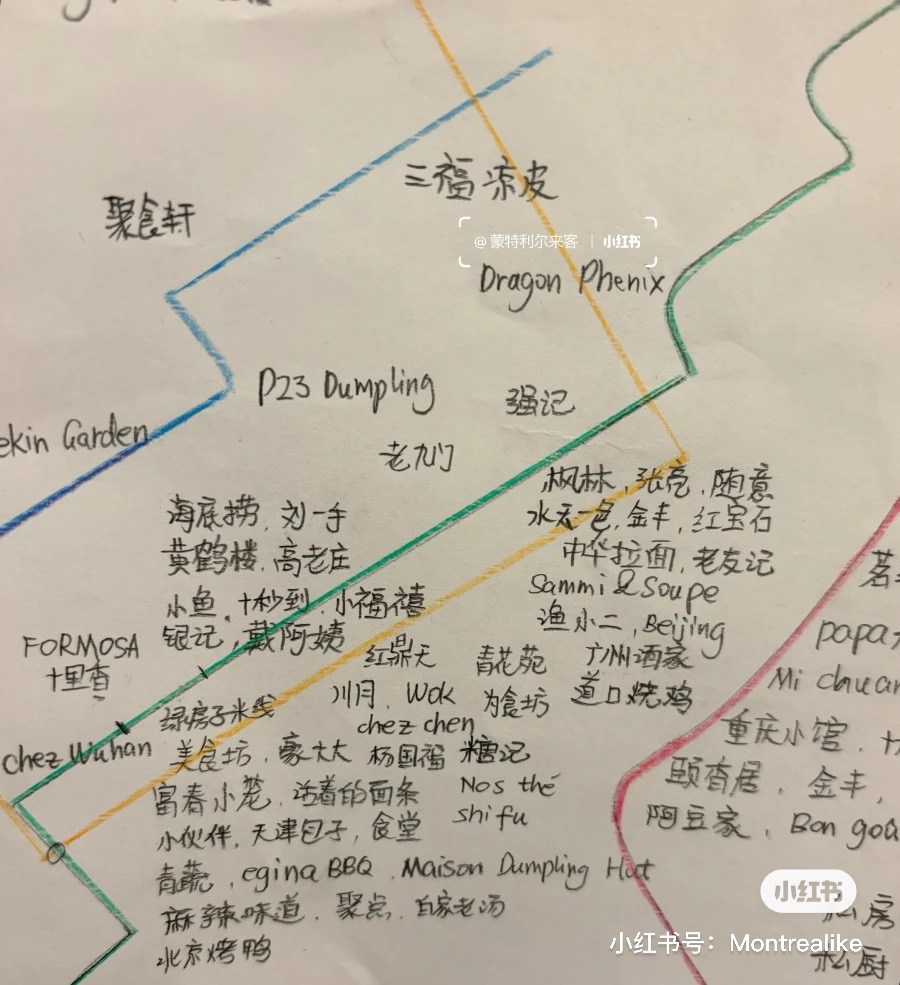 三福凉皮
聚食轩
@蒙特利尔来客 | 小红书
Dragon Phenix
P23 Dumpling
强记
ekin Garden
老九门
枫林,张亮,随意
海底捞,刘一手
水天一色,金丰,红宝石
黄鹤楼,高老庄
中华拉面,老友记
小鱼,十秒到,小福禧
Sammi & Soupe
银记,戴阿姨
渔小二,Beijing
FORMOSA
十里香
红鼎天
青花苑
广州酒家
papa
Mi chuan
川月,Wok
为食坊
道口烧鸡
绿房子米线
chez chen
重庆小馆
chez Wuhan
美食坊,豪大大
杨国福
糖记
颐香居,金丰,
富春小笼,活着的面条
Nos thé
阿豆家,Bon goû
小伙伴,天津包子,食堂
shifu
青蔬,egina BBQ,Maison Dumpling Hut
小红书
麻辣味道,聚点,白家老汤
私房
北京烤鸭
小红书号:Montrealike
私厨